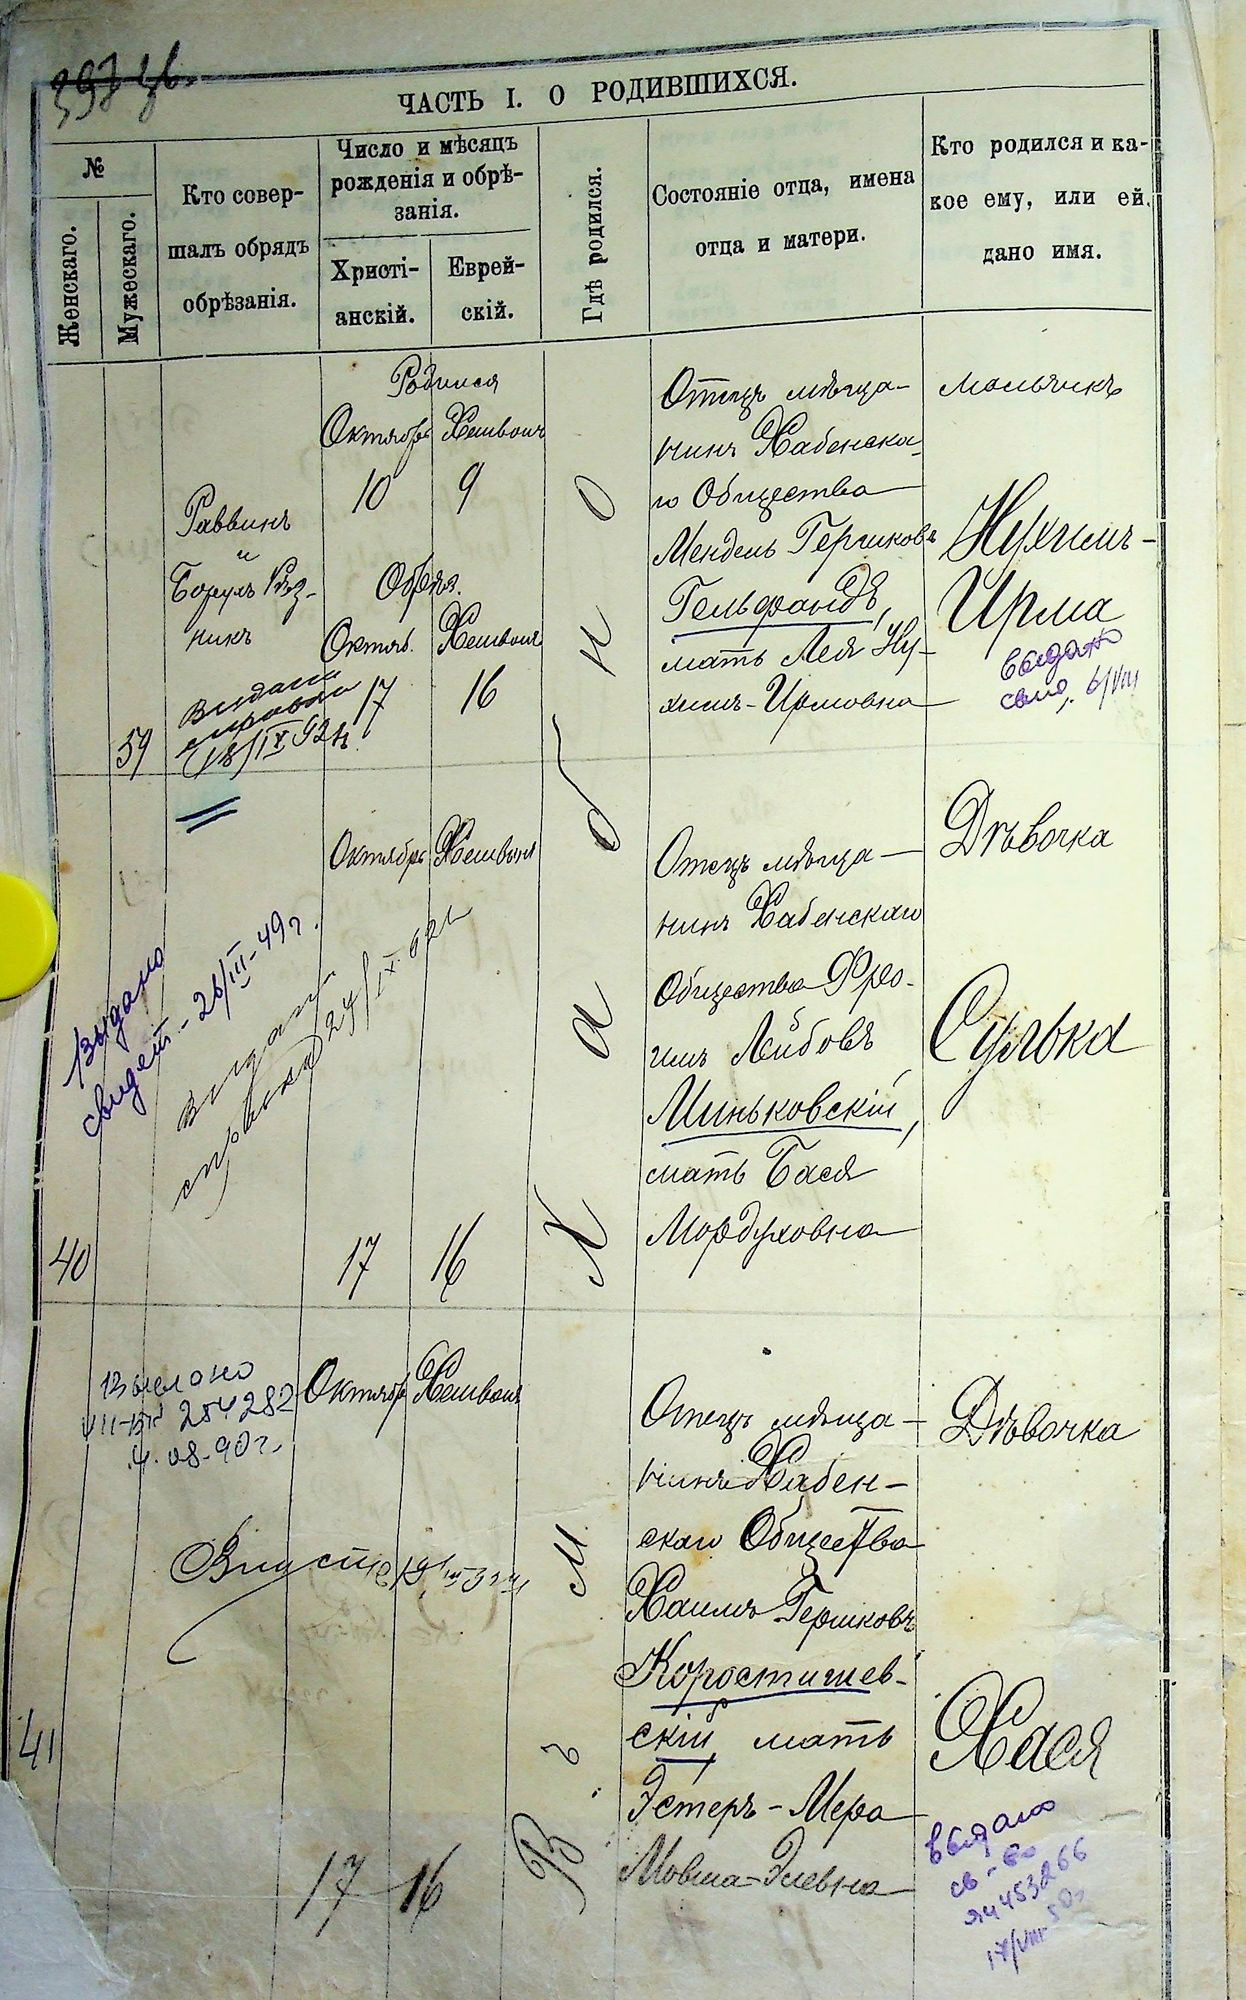 ЧАСТЬ I. О РОДИВШИХСЯ.
№
Женскаго.
Мужескаго.
Кто совер-
шалъ обрядъ
обрѣзанія.
Число и мѣсяцъ
рожденія и обрѣ-
занія.
Христі-
анскій.
Еврей-
скій.
Гдѣ родился.
Состояніе отца, имена
отца и матери.
Кто родился и ка-
кое ему, или ей,
дано имя.
Въ м. Хабно
39
Раввинъ
и
Борухъ Рѣз-
никъ
Выдана
справка
18/IX 92 г.
Родился
Октябрь Хешвонъ
10 9
Обрѣз.
Октяб. Хешвонъ
17 16
Отецъ мѣща-
нинъ Хабенска-
го Общества
Мендель Гершковъ
Гельфандъ,
мать Лея Ну-
химъ-Ирмовна
Мальчикъ
Нухимъ-
Ирма
выдано
40
Выдано
свидет. - 26/III-49 г.
Выдана
справка 24/IX 92 г
Октябрь Хешвонъ
17 16
Отецъ мѣща-
нинъ Хабенскаго
Общества Фро-
имъ Лейбовъ
Миньковскій,
мать Бася
Мордуховна
Дѣвочка
Сулька
41
Выдано
254282
4.08.90 г.
Октябрь Хешвонъ
17 16
Отецъ мѣща-
нинъ Хабен-
скаго Общества
Хаимъ Гершковъ
Коростишев-
скій, мать
Эстеръ-Мера
Мовша-Элевна
Дѣвочка
Хася
выдано
св-во
453266